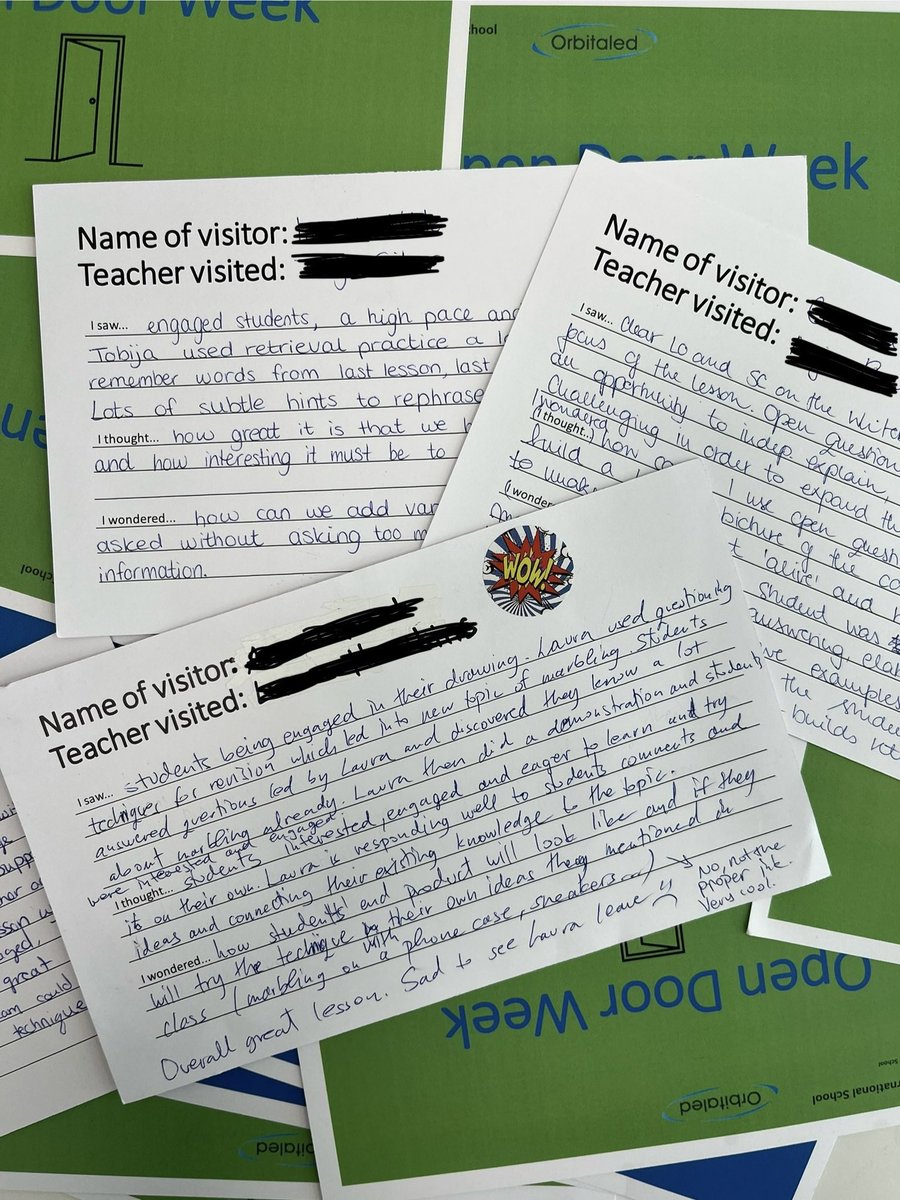 n Door Week
hool
Orbitaled
pen Door Week
Name of visitor:
Teacher visited:
I saw... engaged students, a high pace and
Tobija used retrieval practice a l
remember words from last lesson, last
Lots of subtle hints to rephrase
I thought... how great it is that we
and how interesting it must be to
I wondered... how can we add var
asked without asking too m
information.
Name of visitor:
Teacher visited:
I saw... Clear LO and SC on the write
focus of the lesson. Open question
an opportunity to indep explain,
challenging in order to expand th
I wondered
(I thought...) how co
build a
to make
(I wonder
I use open quest
picture of the co
t 'alive' and
student was
answering, elab
ve examples
the stude
builds
WOW!
Name of visitor:
Teacher visited:
I saw... students being engaged in their drawing. Laura used questioning
technigues for revision which led into new topic of marbling. Students
answered questions led by Laura and discovered they know a lot
about marbling already. Laura then did a demonstration and students
were interested and engaged
I thought... students interested, engaged and eager to learn and try
it on their own. Laura is responding well to students comments and
ideas and connecting their existing knowledge to the topic.
I wondered... how students' end product will look like and if they
will try the technique with their own ideas they mentioned in
class (marbling on a phone case, sneakers...) → No, not the
proper ink.
Very cool.
Overall great lesson. Sad to see Laura leave
supp
sson w
aged,
great
am could
technique
Open Door Week
Orbitaled
rnational School
Orbitaled